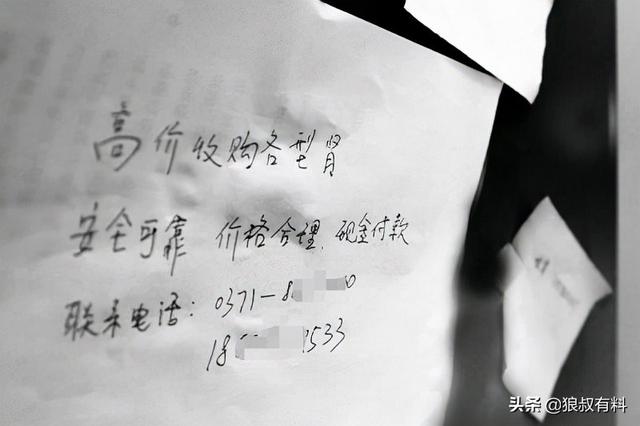 高价收购各型肾
安全可靠 价格合理、现金付款
联系电话：0371-8 0
18 533
头条 @狼叔有料